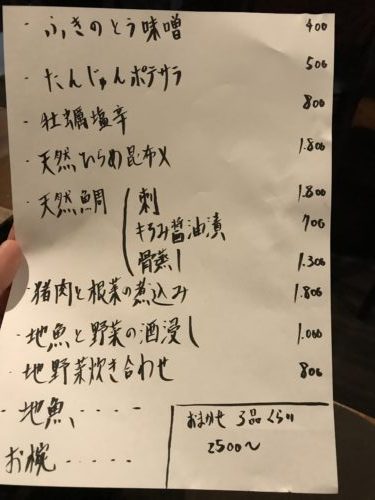 ・ふきのとう味噌 400
・たんじゅんポテサラ 500
・牡蠣塩辛 800
・天然ひらめ昆布〆 1.800
・天然鯛 刺 1.800
キモみ醤油漬 700
骨蒸し 1.300
・猪肉と根菜の煮込み 1.800
・地魚と野菜の酒浸し 1.000
・地野菜炊き合わせ 800
・地魚、・・・・
お椀・・・・・
おまかせ 3品くらい
2500〜